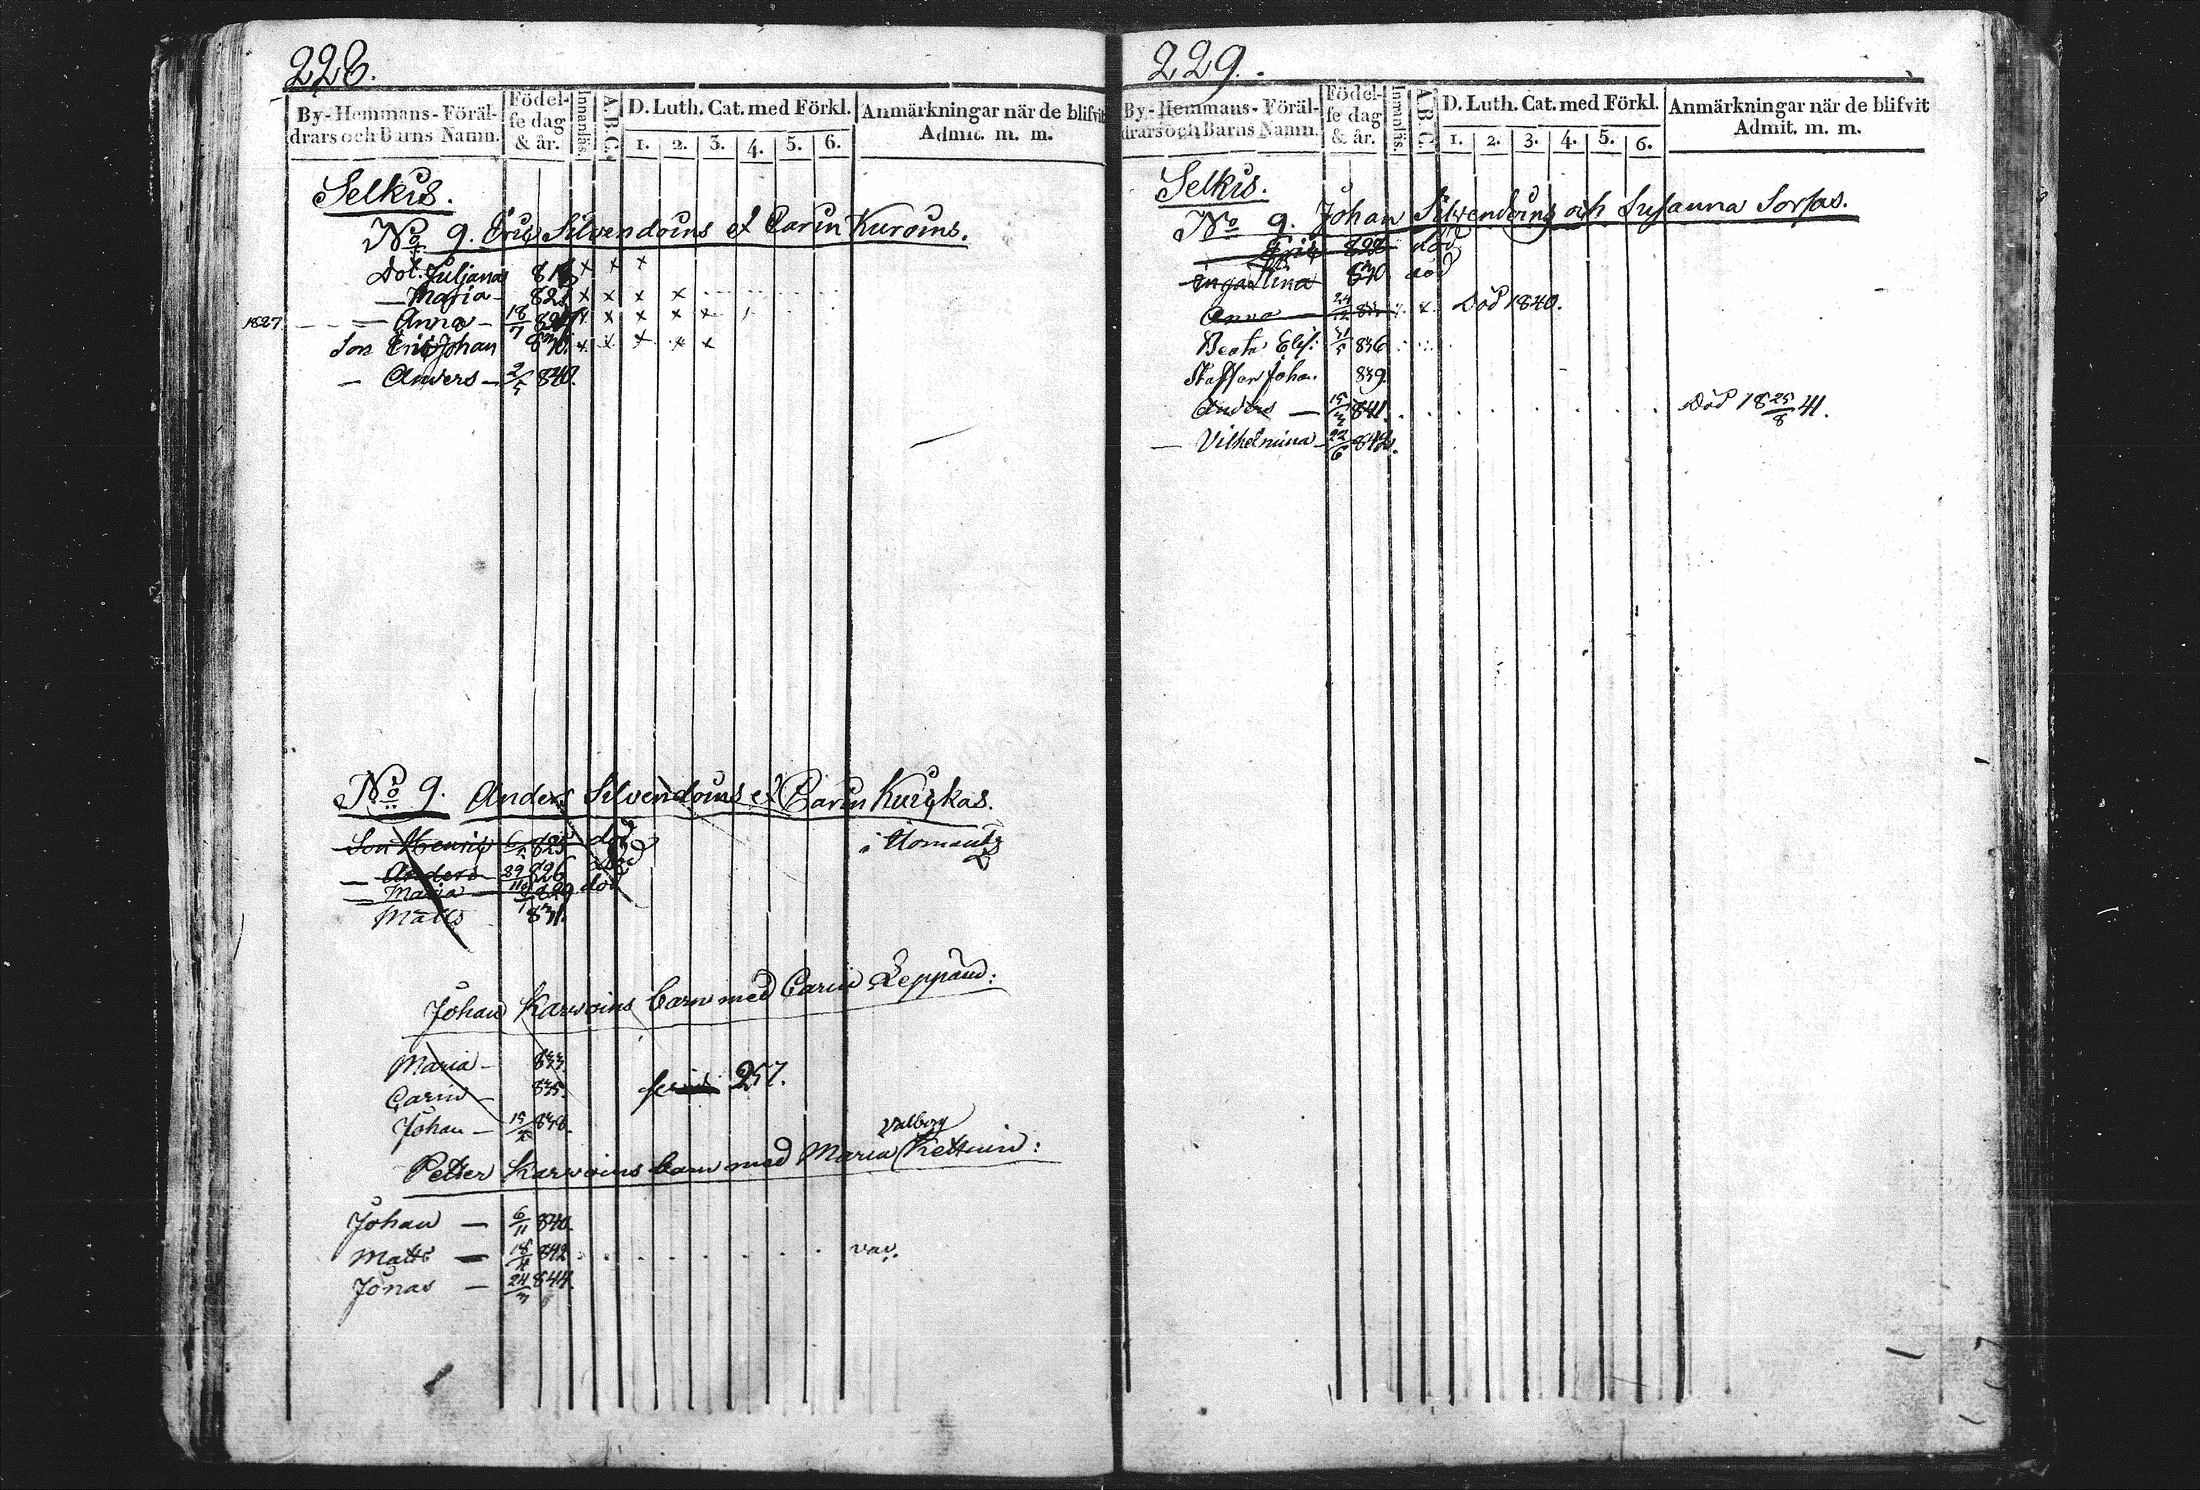 228.
By-Hemmans-Föräl-
drars och Barns Namn.
Födel-
se dag
& år.
Innanläs.
A.B.C.
D. Luth. Cat. med Förkl.
1. 2. 3. 4. 5. 6.
Anmärkningar när de blifvit
Admit. m. m.
Selkis.
No 9. Eric Silvendoins et Carin Kuroins.
Dot. Juljana 818 x x x
— Maria — 821 x x x x
1827 — — — Anna — 18/7 827 x x x x x
Son Eric Johan 830. x x x x x
— Anders — 2/5 840.
No 9. Anders Silvendoins et Carin Kuiykas.
Son Henric 825 död
i Ilomants
— Anders — 29/11 826 död
— Maria — 829 död
Matts 831.
Johan Karvoins barn med Carin Leppäin:
Maria — 833.
Carin — 835.
257.
Johan — 838.
Valborg
Petter Karvoins barn med Maria Kettuin:
Johan — 6/11 840.
Matts — 842 . . . . . . . vac.
Jonas — 24/3 844.
229.
By-Hemmans-Föräl-
drars och Barns Namn.
Födel-
se dag
& år.
Innanläs.
A.B.C.
D. Luth. Cat. med Förkl.
1. 2. 3. 4. 5. 6.
Anmärkningar när de blifvit
Admit. m. m.
Selkis.
No 9. Johan Silvendoins och Susanna Sorsas.
Eric 828 död
Inga Lina 830 död
Anna Död 1840.
Beata Elis: 31/5 836
Staffan Johan 839.
Anders — 841. . . . . . . . Död 18 25/8 41.
— Vilhelmina — 22/6 842.